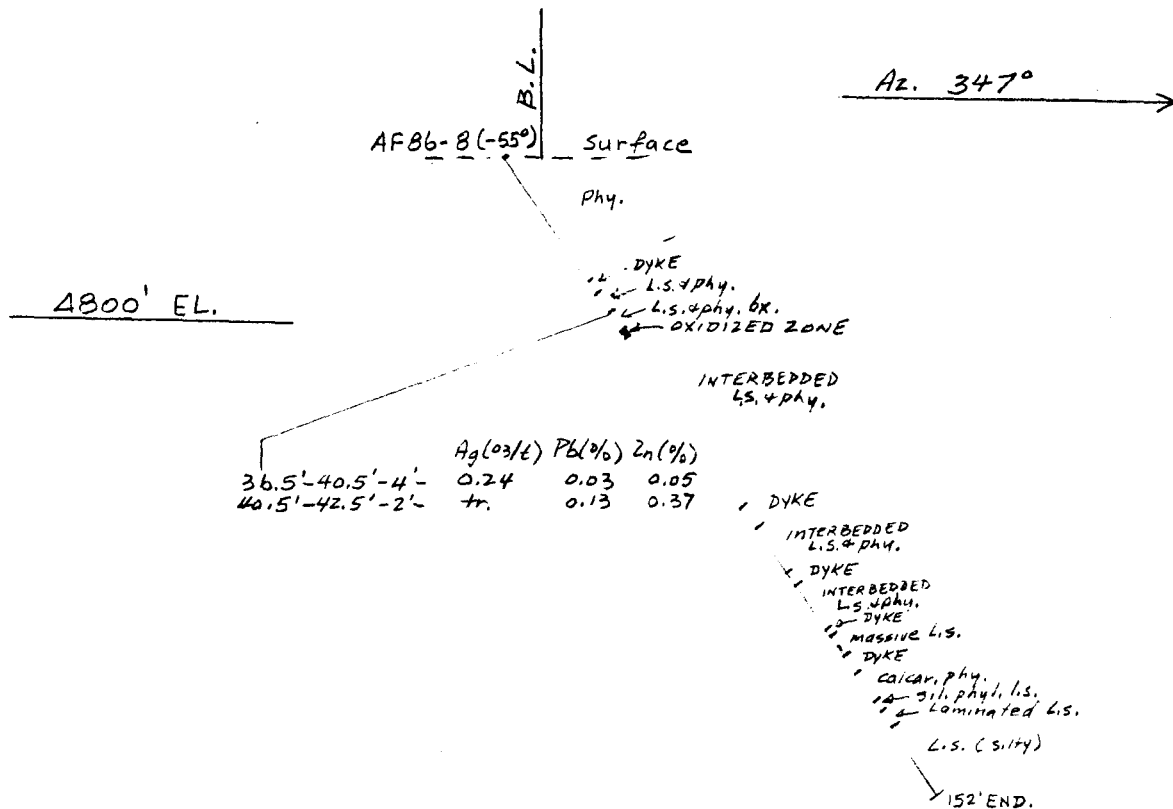 B.L.
Az. 347°
AF86-8 (-55°) Surface
Phy.
DYKE
L.S. & phy.
4800' EL.
L.S. & phy. bx.
OXIDIZED ZONE
INTERBEDDED
L.S. & phy.
Ag (oz/t) Pb (%) Zn (%)
36.5'-40.5'-4'- 0.24 0.03 0.05
40.5'-42.5'-2'- tr. 0.13 0.37
DYKE
INTERBEDDED
L.S. & phy.
DYKE
INTERBEDDED
L.S. & phy.
DYKE
massive L.S.
DYKE
calcar. phy.
sil. phyl. l.s.
Laminated L.S.
L.S. (silty)
152' END.